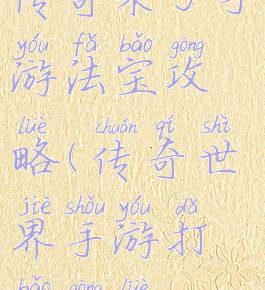 yóu fǎ bǎo gōng
游法宝攻
lüè chuán qí shì
略(传奇世
jiè shǒu yóu dǎ
界手游打